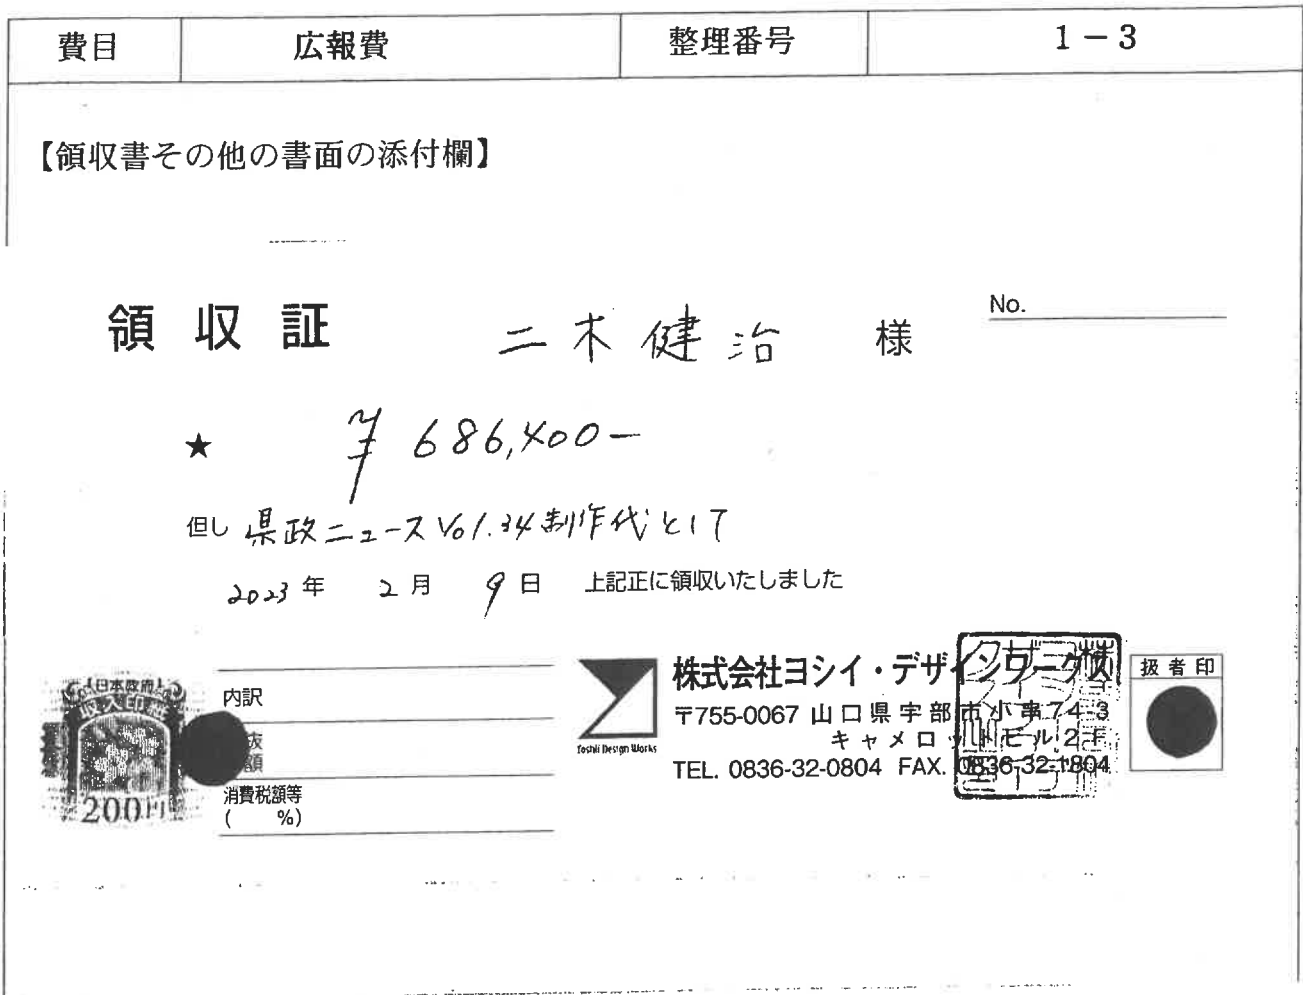 費目 広報費 整理番号 1-3
【領収書その他の書面の添付欄】
領収証 二木健治 様 No.
★ ¥686,400-
但し 県政ニュースVol.34制作代として
2023年 2月 9日 上記正に領収いたしました
日本政府
収入印紙
200円
内訳
消費税額等
( %)
Yoshii Design Works
株式会社ヨシイ・デザインワークス
〒755-0067 山口県宇部市小串74-3
キャメロットビル2F
TEL. 0836-32-0804 FAX. 0836-32-1804
扱者印